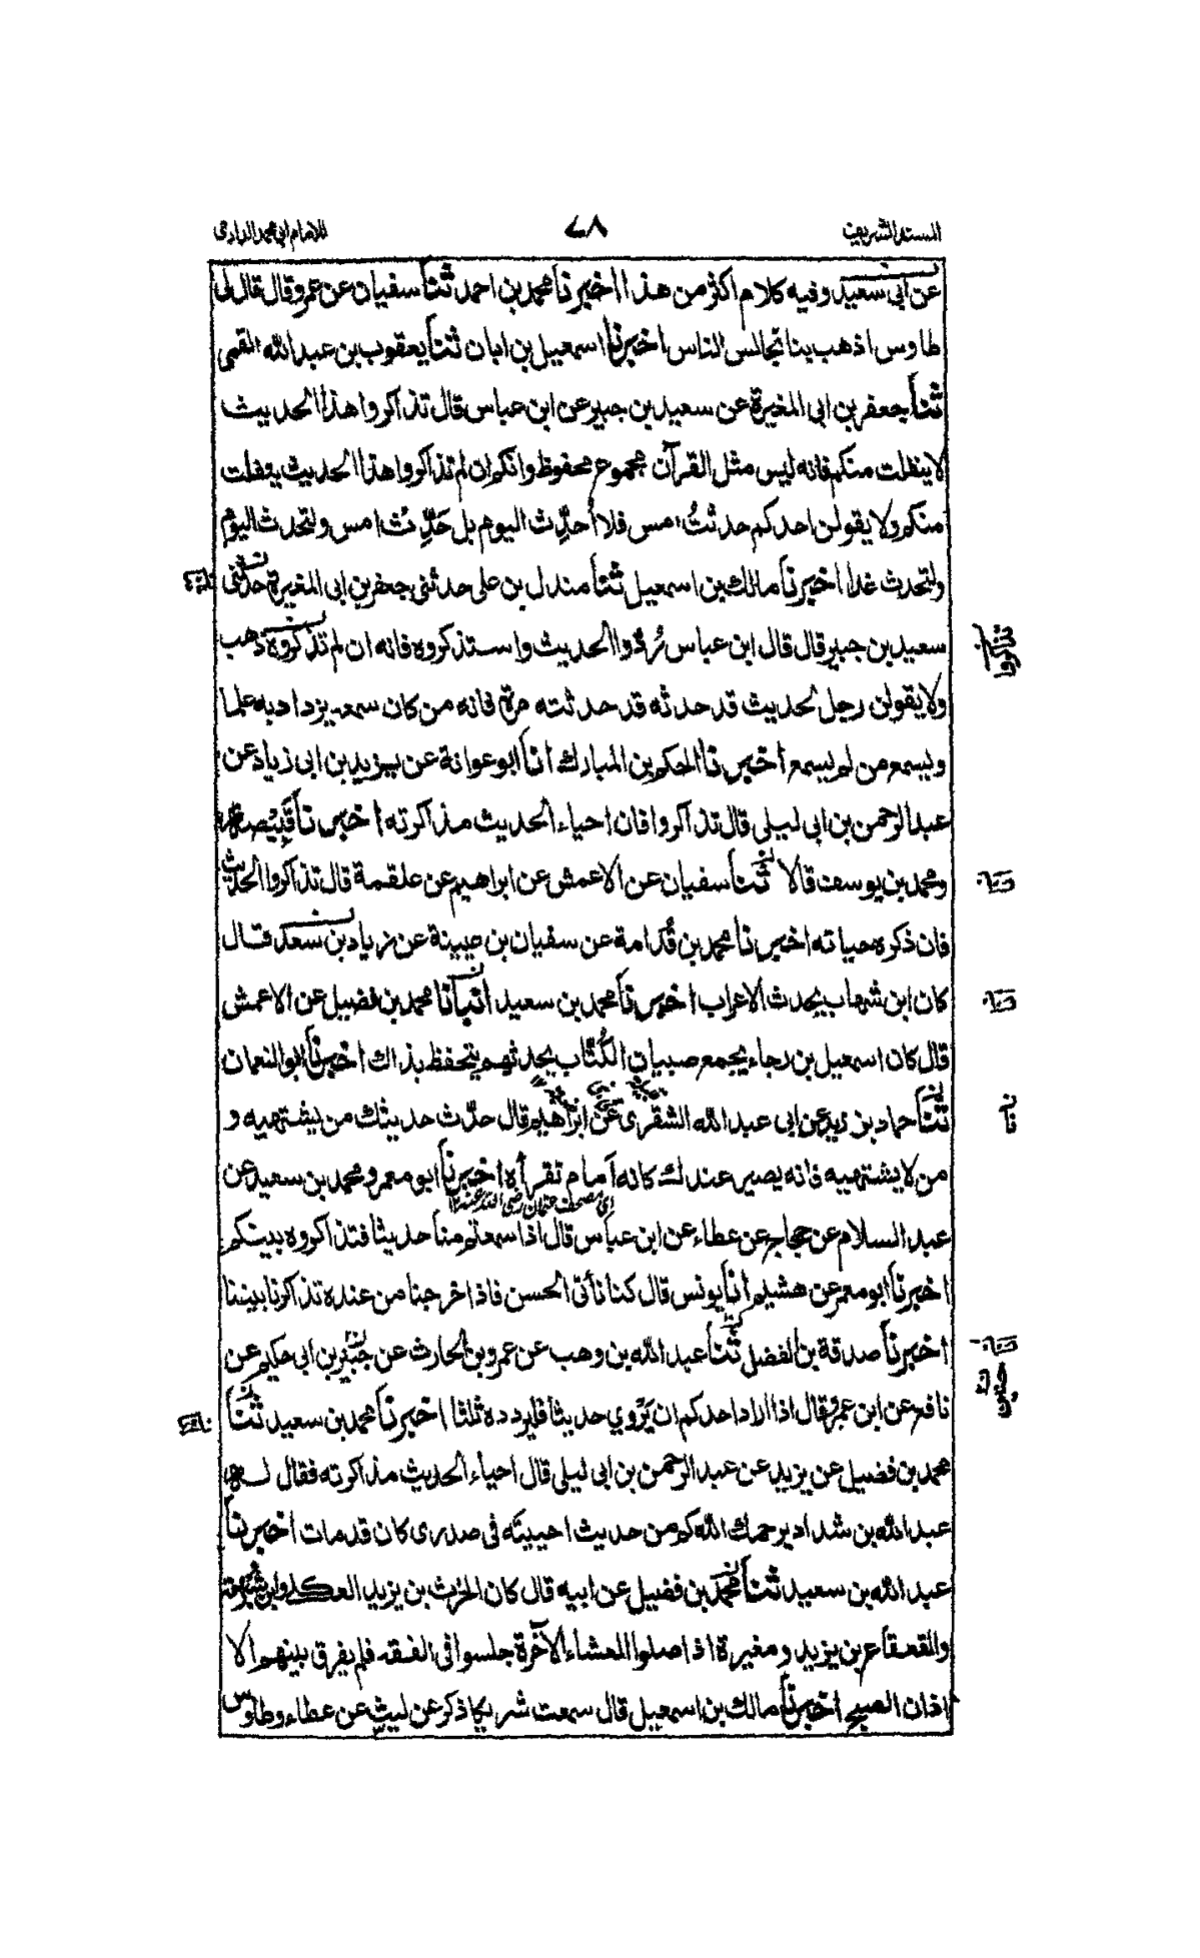 المسند الشريف
٧٨
للامام ابي محمد الدارمي
عن ابي سعيد وفيه كلام اكثر من هذا اخبرنا محمد بن احمد ثنا سفيان عن عمرو قال قال لي
طاوس اذهب بنا نجالس الناس اخبرنا اسمعيل بن ابان ثنا يعقوب بن عبد الله القمي
ثنا جعفر بن ابي المغيرة عن سعيد بن جبير عن ابن عباس قال تذاكروا هذا الحديث
لا ينفلت منكم فانه ليس مثل القرآن مجموع محفوظ وانكم ان لم تذاكروا هذا الحديث ينفلت
منكم ولا يقولن احدكم حدثتُ امس فلا أحدِّث اليوم بل حَدِّث امس ولتحدث اليوم
ولتحدث غدا اخبرنا مالك بن اسمعيل ثنا مندل بن علي حدثني جعفر بن ابي المغيرة حدثني
سعيد بن جبير قال قال ابن عباس رُدُّوا الحديث واستذكروه فانه ان لم تذكروه ذهب
تذاكروا
ولا يقولن رجل لحديث قد حدثه قد حدثته مرة فانه من كان سمعه يزداد به علما
ويسمع من لم يسمع اخبرنا الحكم بن المبارك انا ابو عوانة عن يزيد بن ابي زياد عن
عبد الرحمن بن ابي ليلى قال تذاكروا فان احياء الحديث مذاكرته اخبرنا قَبِيْصة
ومحمد بن يوسف قالا ثنا سفيان عن الاعمش عن ابراهيم عن علقمة قال تذاكروا الحديث
فان ذكره حياته اخبرنا محمد بن قُدَامة عن سفيان بن عيينة عن زياد بن سعد قال
كان ابن شهاب يحدث الاعراب اخبرنا محمد بن سعيد انبانا محمد بن فضيل عن الاعمش
قال كان اسمعيل بن رجاء يجمع صبيان الكُتّاب يحدثهم يتحفظ بذاك اخبرنا ابو النعمان
ثنا حماد بن زيد عن ابي عبد الله الشقري عن ابراهيم قال حدّث حديثك من يشتهيه و
نا
من لا يشتهيه فانه يصير عندك كانه امام تقرأه اخبرنا ابو معمر ومحمد بن سعيد عن
اي مصحف عثمان رضي الله عنه ١٢
عبد السلام عن حجاج عن عطاء عن ابن عباس قال اذا سمعتم منا حديثا فتذاكروه بينكم
اخبرنا ابو معمر عن هشيم انا يونس قال كنا نأتي الحسن فاذا خرجنا من عنده تذاكرنا بيننا
اخبرنا صدقة بن الفضل ثنا عبد الله بن وهب عن عمرو بن الحارث عن جبير بن ابي حكيم عن
نافع عن ابن عمر وقال اذا اراد احدكم ان يَرْوي حديثا فليردده ثلثا اخبرنا محمد بن سعيد ثنا
محمد بن فضيل عن يزيد عن عبد الرحمن بن ابي ليلى قال احياء الحديث مذاكرته فقال له
عبد الله بن شداد يرحمك الله كم من حديث احييته في صدري كان قد مات اخبرنا
عبد الله بن سعيد ثنا محمد بن فضيل عن ابيه قال كان الحرث بن يزيد العكلي وابن شُبْرمة
والقعقاع بن يزيد ومغيرة اذا صلوا العشاء الآخرة جلسوا في الفقه فلم يفرق بينهم الا
اذان الصبح اخبرنا مالك بن اسمعيل قال سمعت شريكا ذكر عن ليث عن عطاء وطاوس